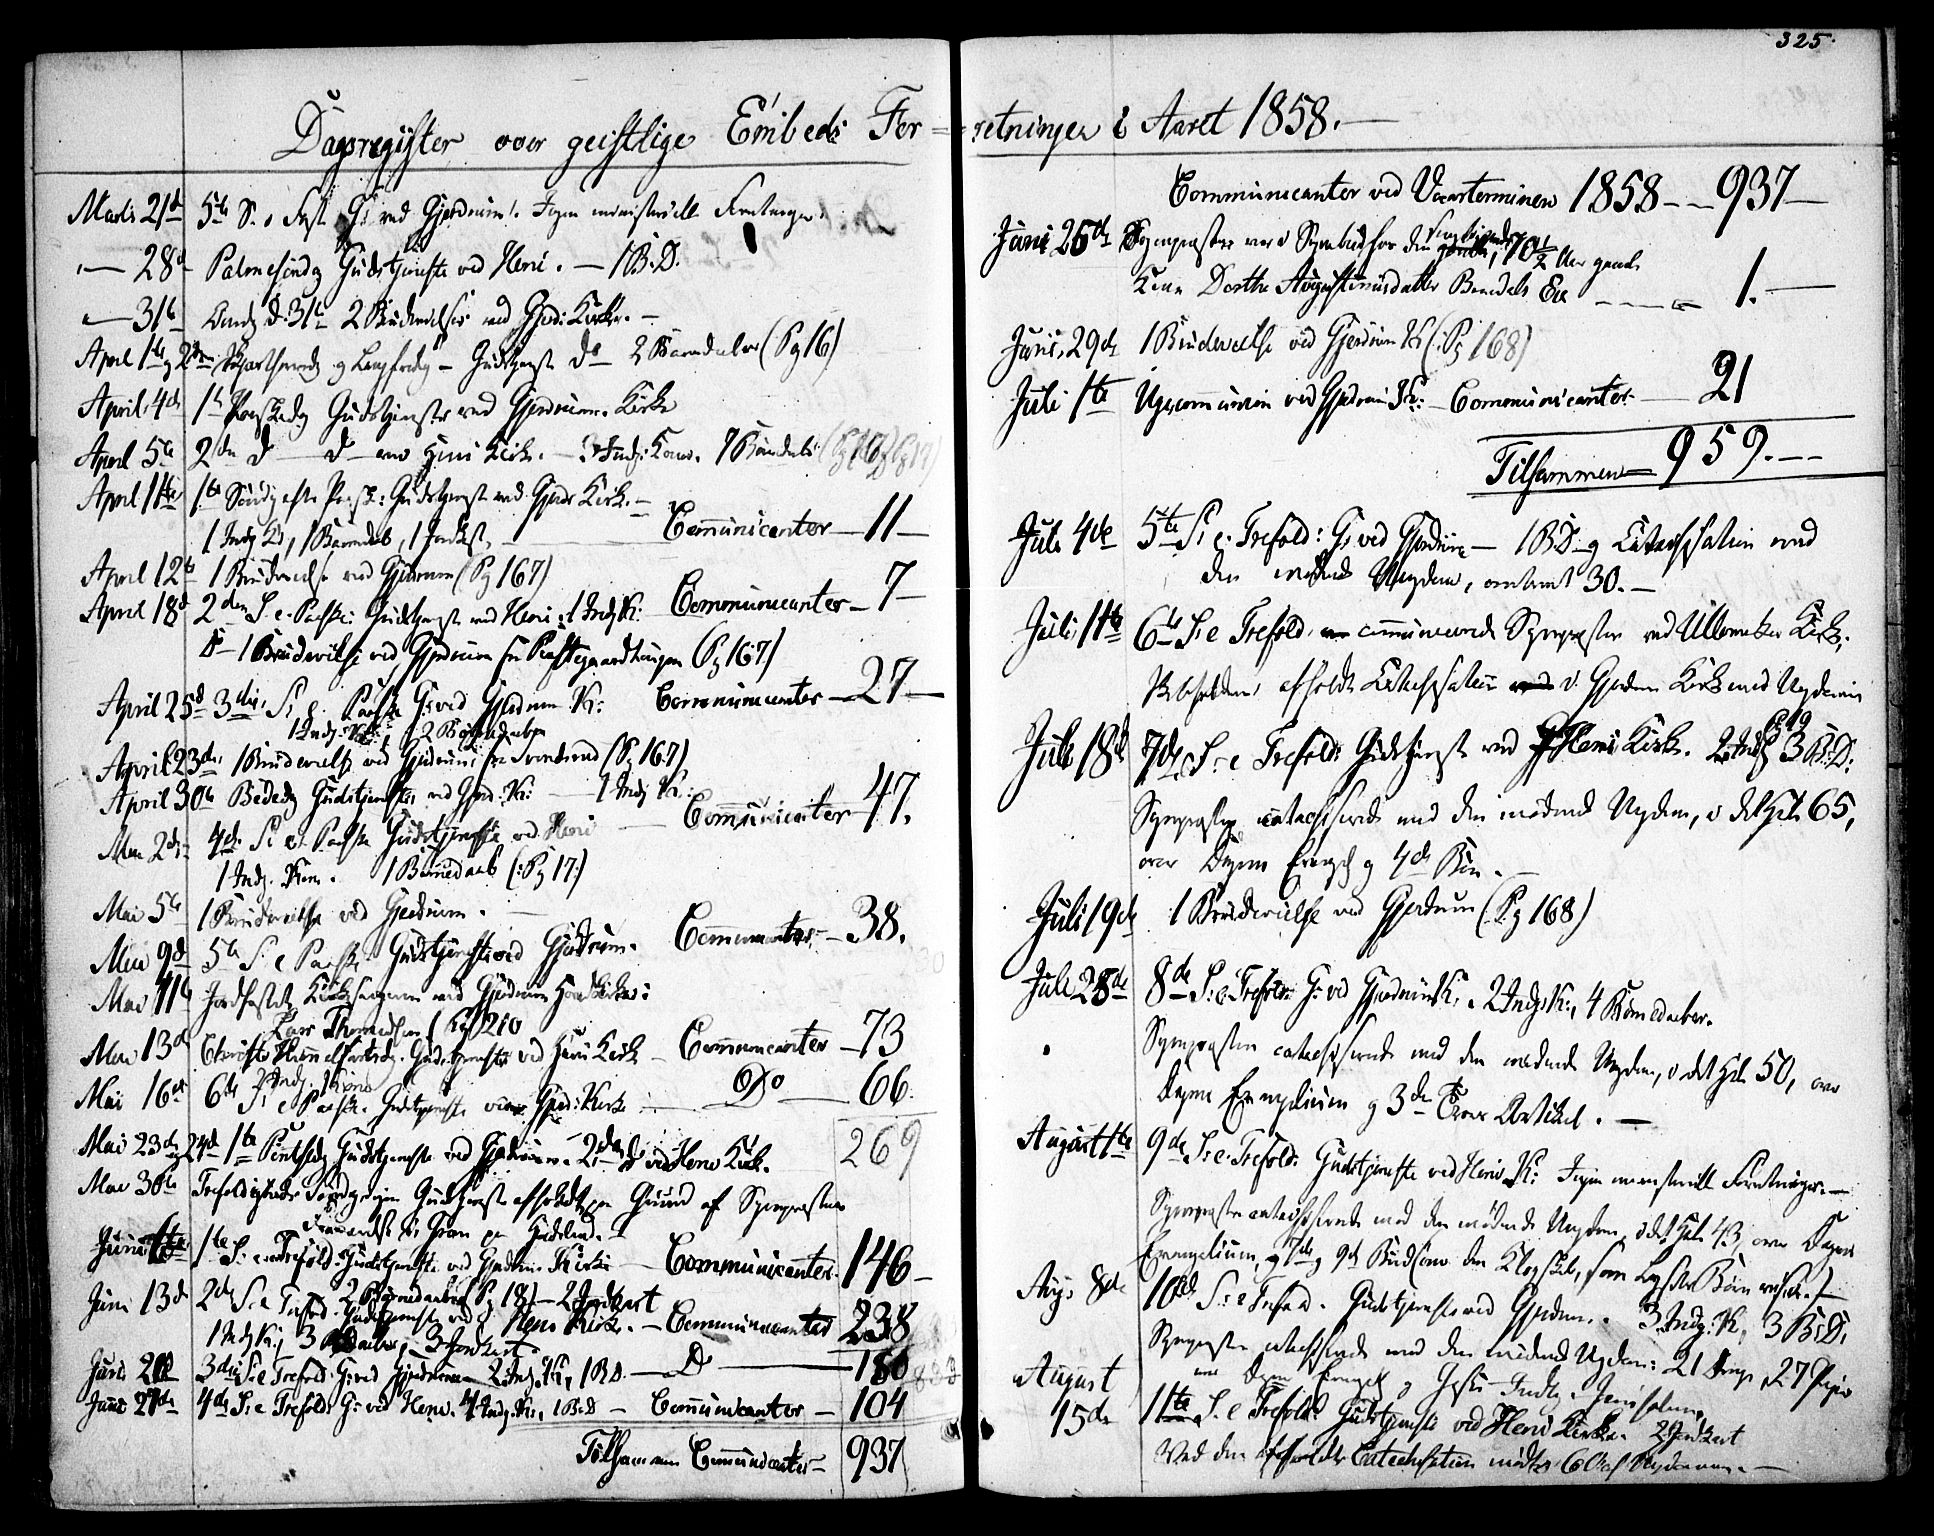 325.
Dagsregister over geistlige Embeds For=
=retninger i Aaret 1858.
Marts 21d 5te S. i Fast. G: ved Gjerdrum. Ingen ministerielle Forretninger.
— 28d Palmesøndag Gudstjeneste ved Heni. — 1 B.D.
— 31te d. 31te 2 Brudevielser ved Gjerd: Kirke. —
April 1te og 2den Skjærthorsdag og Langfredag — Gudstjenest do — 2 Barnedaaber (Pg 16)
April 4de 1te Paaskedag Gudstjeneste ved Gjerdrum Kirke
April 5te 2den d — d — ved Heni Kirke. — 3 Indg: Koner. 7 Barnedaab (Pg 16 og Pg 17)
April 11te 1te Søndag efter Paask: Gudstjenest ved Gjerdr Kirk. —
1 Indg K, 1 Barnedaab, 1 Jordkast. — Communicanter — 11 —
April 12te 1 Brudevielse ved Gjerdrum (Pg 167)
April 18d 2den S. e. Paaske: Gudstjenest ved Heni: 1 Indg K: Communicanter — 7 —
1 Brudevielse ved Gjerdrum (Pg 167)
April 25d 3die S. e. Paaske G: ved Gjerdrum K: Communicanter — 27 —
1 Indg. K: 2
April 23de 1 Brudevielse ved Gjerdrum (Pg 167)
April 30te Bededag Gudstjeneste ved Gjerd: K: — 1 Indg K: Communicanter — 47.
Mai 2den 4de S. e. Paaske Gudstjeneste ved Heni
1 Indg. Kone. 1 Barnedaab (: Pg 17:)
Mai 5te 1 Brudevielse ved Gjerdrum. —
Mai 9de 5te S. e Paaske Gudstjeneste ved Gjerdrum. Communicanter — 38.
Mai 11te Jordfæstet Kirkesangeren ved Gjerdrum
Lars Thomassen (Pg 210
Mai 13d Christi Himmelfartsdag. Gudstjeneste ved Heni Kirke — Communicanter — 73
2 Indg. Kone
Mai 16de 6te S. e Paaske. Gudstjeneste ved Gjerd: Kirke — Do — 66.
269
Mai 23de og 24d 1te Pintsedag Gudstjeneste ved Gjerdrum — 2den d ved Heni Kirk.
Mai 30te Trefoldigheds Søndag ingen Gudstjenest afholdt paa Grund af Sognepræstens
Juni 6te 1te S. e Trefold: Gudstjeneste ved Gjerdrum Kirke — Communicanter — 146 —
2 Barnedaaber (Pg 18) — 2 Jordkast
Juni 13d 2de S. e Trefold. Gudstjeneste ved Heni Kirke. — Communicanter 238
1 Indg K:, 3 Bdaaber, 3 Jordkast
Juni 20 3die S: e Trefold: G: ved Gjerdrum 2 Indg. K, 1 B.D. — Do — 180
833
Juni 27de 4de S: e Trefold: G: ved Heni. 4 Indg. K:, 1 B:D — Communicanter — 104
Tilsammen Communicanter — 937
Communicanter ved Vaarterminen 1858 — 937 —
Juni 26de Sognepræsten ved Sognebud for den sengeliggende, 70 1/2 Aar gamle
Kone Dorthe Augustinusdatter Eie — 1. —
Juni 29de 1 Brudevielse ved Gjerdrum K (: Pg 168)
Juli 1te Ugecommunion ved Gjerdrum K: — Communicanter — 21
Tilsammen — 959. —
Juli 4de 5te S: e. Trefold: G: ved Gjerdrum — 1 B.D. og Catechisation med
den mødende Ungdom, omtrent 30. —
Juli 11te 6te S: e Trefold. Sognepræsten ved Ullensaker Kirke;
afholdt Catechisation i Gjerdrum Kirke med Ungdommen
Juli 18d 7de S: e Trefold: Gudstjenest ved Heni Kirke. 2 Indg 3 B:D: P. 19
Sognepræsten catechiserede med den mødende Ungdom, i det Hele 65,
over Dagens Evangel og 4de Bøn. —
Juli 19de 1 Brudevielse ved Gjerdrum (Pg 168)
Juli 25de 8de S: e: Trefold: G: ved Gjerdrum K: 2 Indg K:, 4 Barnedaaber.
Sognepræsten catechiserede med den mødende Ungdom, i det Hele 50, over
Dagens Evangelium og 3de Troes Artikel. —
August 1te 9de S: e: Trefold: Gudstjeneste ved Heni K: Ingen ministerielle Forretninger. —
Sognepræsten catechiserede med den mødende Ungdom, i det Hele 43, over Dagens
Evangelium, og 9de Bud
Aug: 8de 10de S: e Trefold. Gudstjeneste ved Gjerdrum. 3 Indg. K, 3 B:D:
Sognepræsten catechiserede med den mødende Ungdom: 21 Drenge, 27 Piger
over Dagens Evangel Jesu Indtog i Jerusalem,
August
15de 11te S. e Trefold: Gudstjeneste ved Heni Kirke. 2 Jordkast
Ved den afholdte Catechisation mødte 60 af Ungdommen. —